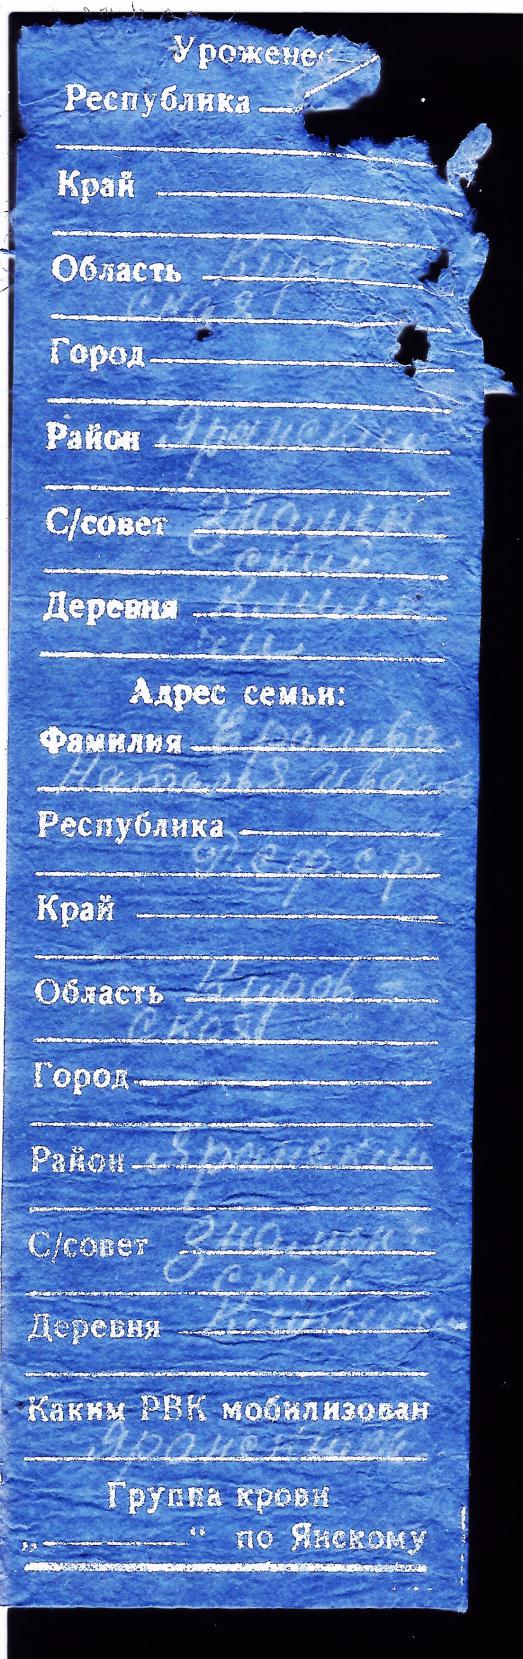 Уроженец
Республика
Край
Область Киров
ская
Город
Район Яранский
С/совет Знамен
ский
Деревня
Адрес семьи:
Фамилия
Наталья Ива
Республика
Р.с.ф.с.р.
Край
Область Киров
ская
Город
Район Яранский
С/совет Знамен
ский
Деревня
Каким РВК мобилизован
Яранский
Группа крови
„ “ по Янскому